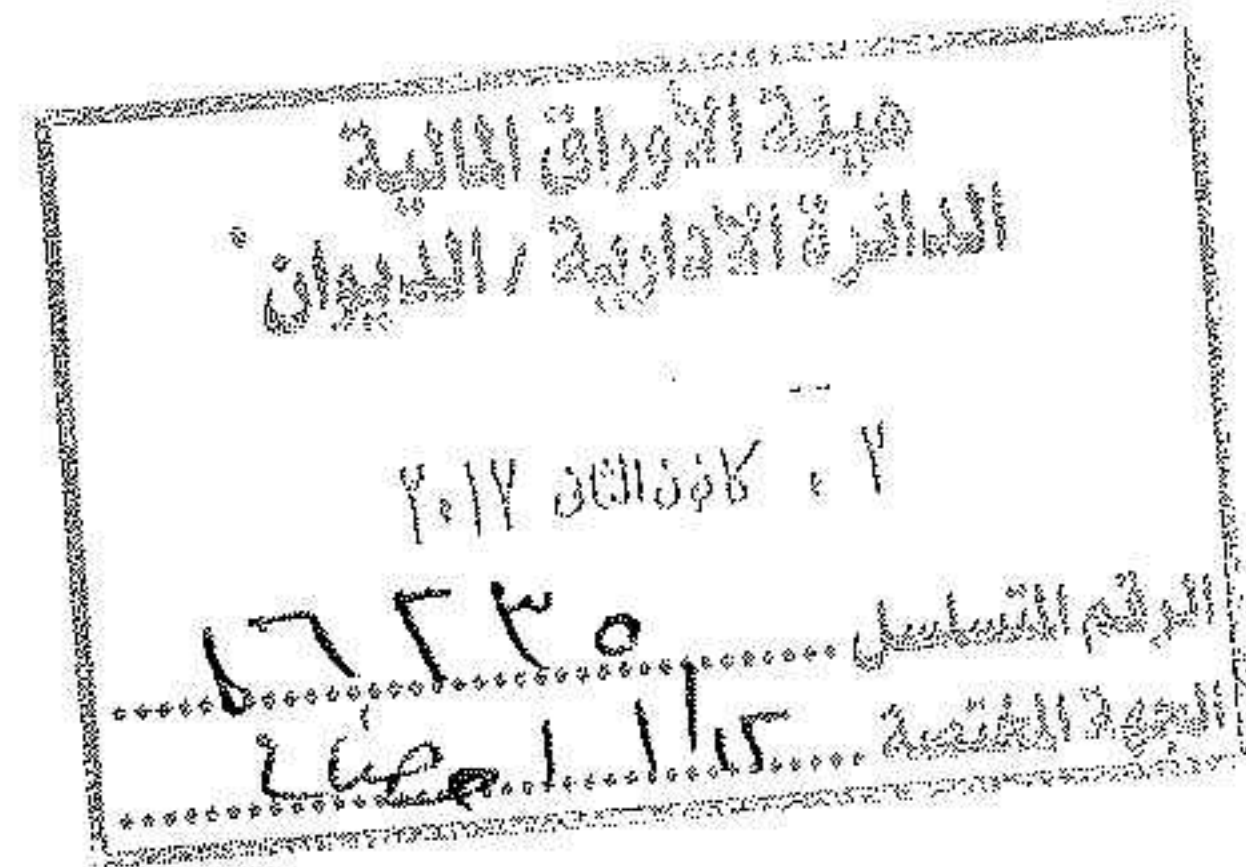 هيئة الأوراق المالية
الدائرة الادارية / الديوان
٠٢ كانون الثاني ٢٠١٧
الرقم التسلسل
الجهة المختصة